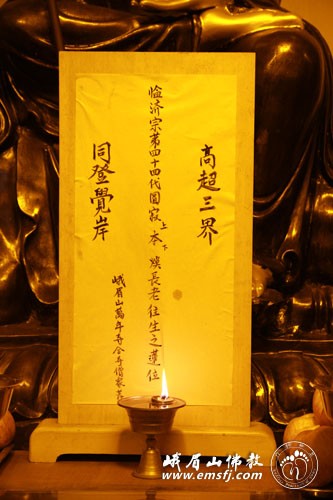 高超三界
临济宗第四十四代圓寂上本下煥長老往生之蓮位
同登覺岸
峨眉山萬年寺合寺僧眾
峨眉山佛教
www.emsfj.com